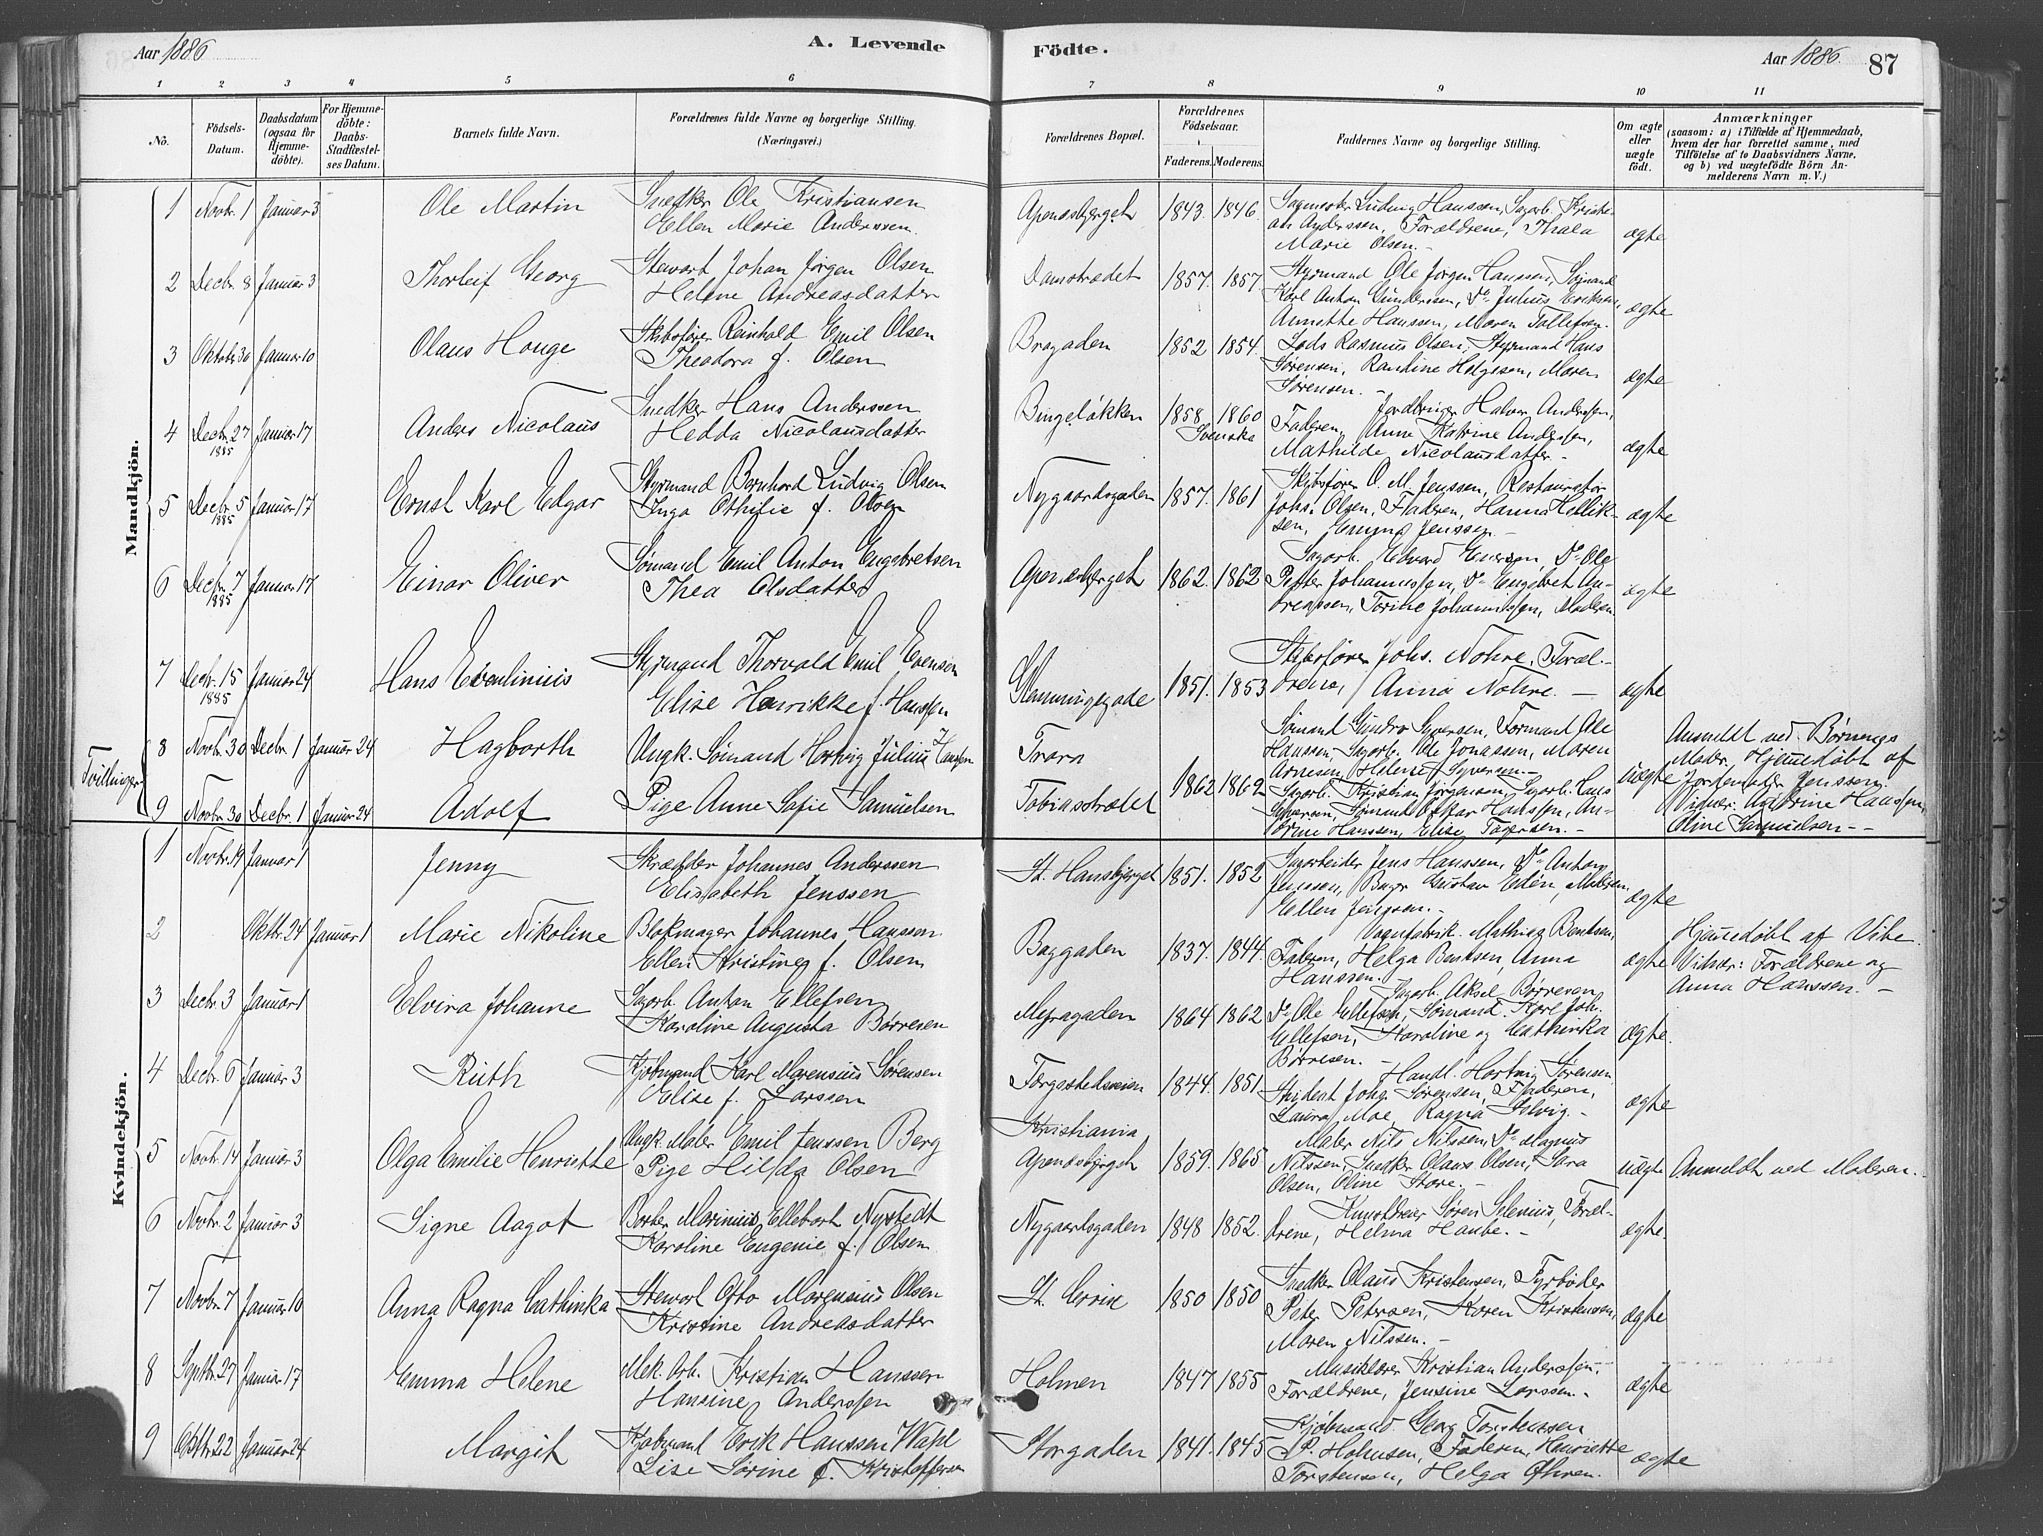 Aar 1886
A. Levende
Födte.
Aar 1886.
87
1 2 3 4 5 6 7 8 9 10 11
No.
Födsels-Datum.
Daabsdatum (ogsaa for Hjemmedöbte).
For Hjemmedöbte: Daabs-Stadfæstelses Datum.
Barnets fulde Navn.
Forældrenes fulde Navne og borgerlige Stilling.
(Næringsvei.)
Forældrenes Bopæl.
Forældrenes Födselsaar.
Faderens. Moderens.
Faddernes Navne og borgerlige Stilling.
Om ægte eller uægte födt.
Anmærkninger
(saasom: a) i Tilfælde af Hjemmedaab, hvem der har forrettet samme, med Tilföielse af to Daabsvidners Navne, og b) ved uægtefödte Börn Anmelderens Navn m. V.)
Mandkjön.
1 Novbr. 1 Januar 3 Ole Martin
Snedker Ole Kristiansen
Ellen Marie Anderssen.
Apenesbjerget 1843. 1846.
Sagmester Ludvig Hanssen, Sagarb. Kristi-
an Anderssen, Forældrene, Thala
Marie Olsen.-
ægte
2 Decbr. 8 Januar 3 Thorleif Georg
Stewart Johan Jørgen Olsen
Helene Andreasdatter
Damstrædet 1857. 1857.
Styrmand Ole Jørgen Hanssen, Sømand
Karl Anton Gundersen, Do Julius Eriksen,
Annette Hanssen, Maren Tollefsen.
ægte
3 Oktobr. 30 Januar 10 Olaus Houge
Skibsfører Reinhold Emil Olsen
Theodora f. Olsen
Bragaden 1852 1854.
Lods Rasmus Olsen, Styrmand Hans
Sørensen, Randine Helgesen, Maren
Sørensen.-
ægte
4 Decbr. 27 1885 Januar 17 Anders Nicolaus
Snedker Hans Anderssen
Hedda Nicolausdatter
Bingeløkken 1858. 1860
Svenske
Jordbruger Halvor Anderssen,
Faderen, Anne Katrine Anderssen,
Mathilde Nicolausdatter.-
ægte
5 Decbr. 5 1885 Januar 17 Ernst Karl Edgar
Styrmand Bernhard Ludvig Olsen
Inga Othilie f. Olsen
Nygaardsgaden 1857. 1861
Skibsfører O. M. Jenssen, Restauratør
Johs. Olsen, Faderen, Hanna Hellik-
sen, Jenssen.
ægte
6 Decbr. 7 1885 Januar 17 Einar Oliver
Sømand Emil Anton Engebretsen
Thea Olsdatter
Apenesbjerget 1862. 1862
Sagarb. Edvard Enersen, Do Ole
Petter Johannessen, Do Engebret An-
dreassen, Torine Johannessen, Moderen
ægte
7 Decbr. 15 1885 Januar 24 Hans Evenlinius
Styrmand Thorvald Emil Evensen
Elise Henrikke f. Hanssen
Glemmingegade 1851. 1853
Skibsfører Johs. Nohre, Foræl-
drene, Anna Nohre.-
ægte
Tvillinger
8 Novbr. 30 Decbr. 1 Januar 24 Hagbarth
Ungk. Sømand Hartvig Julius Hanssen
Trara
Sømand Gundro Syversen, Formand Ole
Hanssen, Sagarb. Ole Jonassen, Maren
Arnesen, Helene Syversen.-
9 Novbr. 30 Decbr. 1 Januar 24 Adolf
Pige Anne Sofie Samuelsen
Tobiasstrædet 1862 1862
Sagarb. Kristian Jørgensen, Sagarb. Lars
Syversen, Sømand Oskar Hanssen, An-
drine Hanssen, Elise Torersen.-
uægte
Anmeldt ved Børnenes
Moder, Hjemmedøbt af
Jordemoder Jenssen.
Vidner: Andrine Hanssen,
Oline Samuelsen--
Kvindekjön.
1 Novbr. 19 Januar 1 Jenny
Skrædder Johannes Anderssen
Elisabeth Jenssen
St. Hansbjerget 1851. 1852
Sagarbeider Jens Hanssen, Do Anton
Jenssen, Bager Gustav Edén,
Ellen Jenssen.-
ægte
2 Oktbr. 24 Januar 1 Marie Nikoline
Blokmager Johannes Hanssen
Ellen Kristine f. Olsen
Baggaden 1837. 1844.
Vognfabrik. Mathias Bentsen,
Faderen, Helga Bentsen, Anna
Hanssen.-
ægte
Hjemmedøbt af Vibe.
Vidner: Forældrene og
Anna Hanssen.-
3 Decbr. 3 Januar 1 Elvira Johanne
Sagarb. Anton Ellefsen
Karoline Augusta Børresen
Myragaden 1864 1862
Sagarb. Aksel Børresen
Do Ole Ellefsen, Sømand Karl Joh.
Ellefsen, Karoline og Cathinka
Børresen.
ægte.
4 Decbr. 6 Januar 3 Ruth
Kjøbmand Karl Marensius Sørensen
Elise f. Larssen
Torgastedsveien 1844. 1851.
Handl. Hartvig Sørensen
Student Johs. Sørensen, Faderen,
Laura Moe, Ragna Solvig.-
ægte
5 Novbr. 14 Januar 3 Olga Emilie Henriette
Ungk. Maler Emil Jenssen Berg
Pige Hilda Olsen
Kristiania
Apenesbjerget 1859. 1865
Maler Nils Nilssen, Do Magnus
Nilssen, Snedker Olaus Olsen, Sara
Olsen, Oline Store.-
uægte Anmeldt ved Moderen.
6 Novbr. 2 Januar 3 Signe Aagot
Barber Marinius Ellebart Nystedt
Karoline Eugenie f. Olsen
Nygaardsgaden 1848 1852.
Kunstdreier Søren Selenius, Foræl-
drene, Helma Haube.-
ægte.
7 Novbr. 7 Januar 10 Anna Ragna Cathinka
Stewart Otto Marensius Olsen
Kristine Andreasdatter
St. Croix 1850 1850
Snedker Olaus Kristensen, Fyrbøder
Peter Petersen, Karen Kristensen,
Maren Nilssen.-
ægte
8 Septbr. 27 Januar 17 Emma Helene
Mek. Arb. Kristian Hanssen
Hansine Anderssen
Holmen 1847 1855
Musiklærer Kristian Anderssen,
Forældrene, Jensine Larssen.
ægte
9 Oktbr. 22 Januar 24 Margit
Kjøbmand Erik Hanssen Wahl
Lise Sørine f. Kristoffersen
Storgaden 1841. 1845
Kjøbmand Georg Torstenssen
P. Holmsen, Faderen, Henriette
Torstensen, Helga Øhren.
ægte